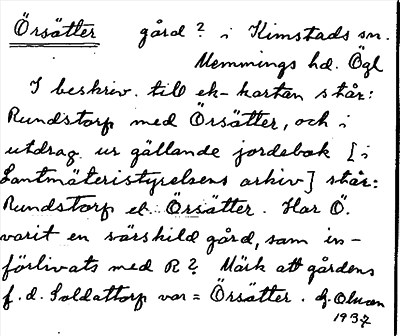 Örsätter gård? i Kimstads sn.
Memmings hd. Ögl
I beskriv. till ek-kartan står:
Rundstorp med Örsätter, och i
utdrag ur gällande jordebok [i
Lantmäteristyrelsens arkiv] står:
Rundstorp el. Örsätter. Har Ö.
varit en särskild gård, som in-
förlivats med R? Märk att gårdens
f.d. Soldattorp var = Örsätter.
1937